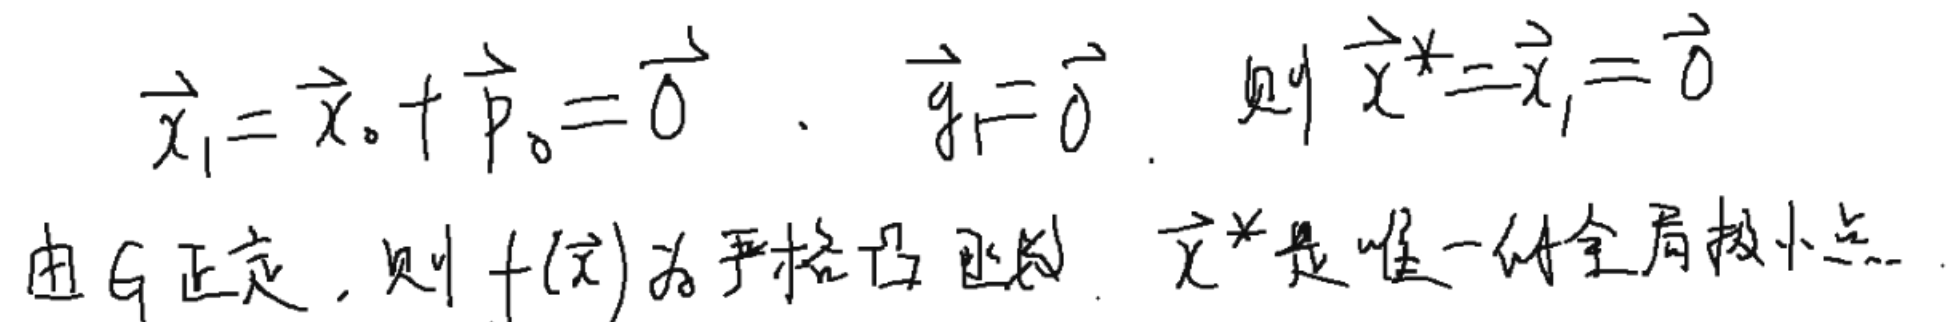 x⃗₁ = x⃗₀ + p⃗₀ = 0⃗ . g⃗₁ = 0⃗ . 则 x⃗* = x⃗₁ = 0⃗
由 G 正定, 则 f(x⃗) 为严格凸函数. x⃗* 是唯一的全局极小点.